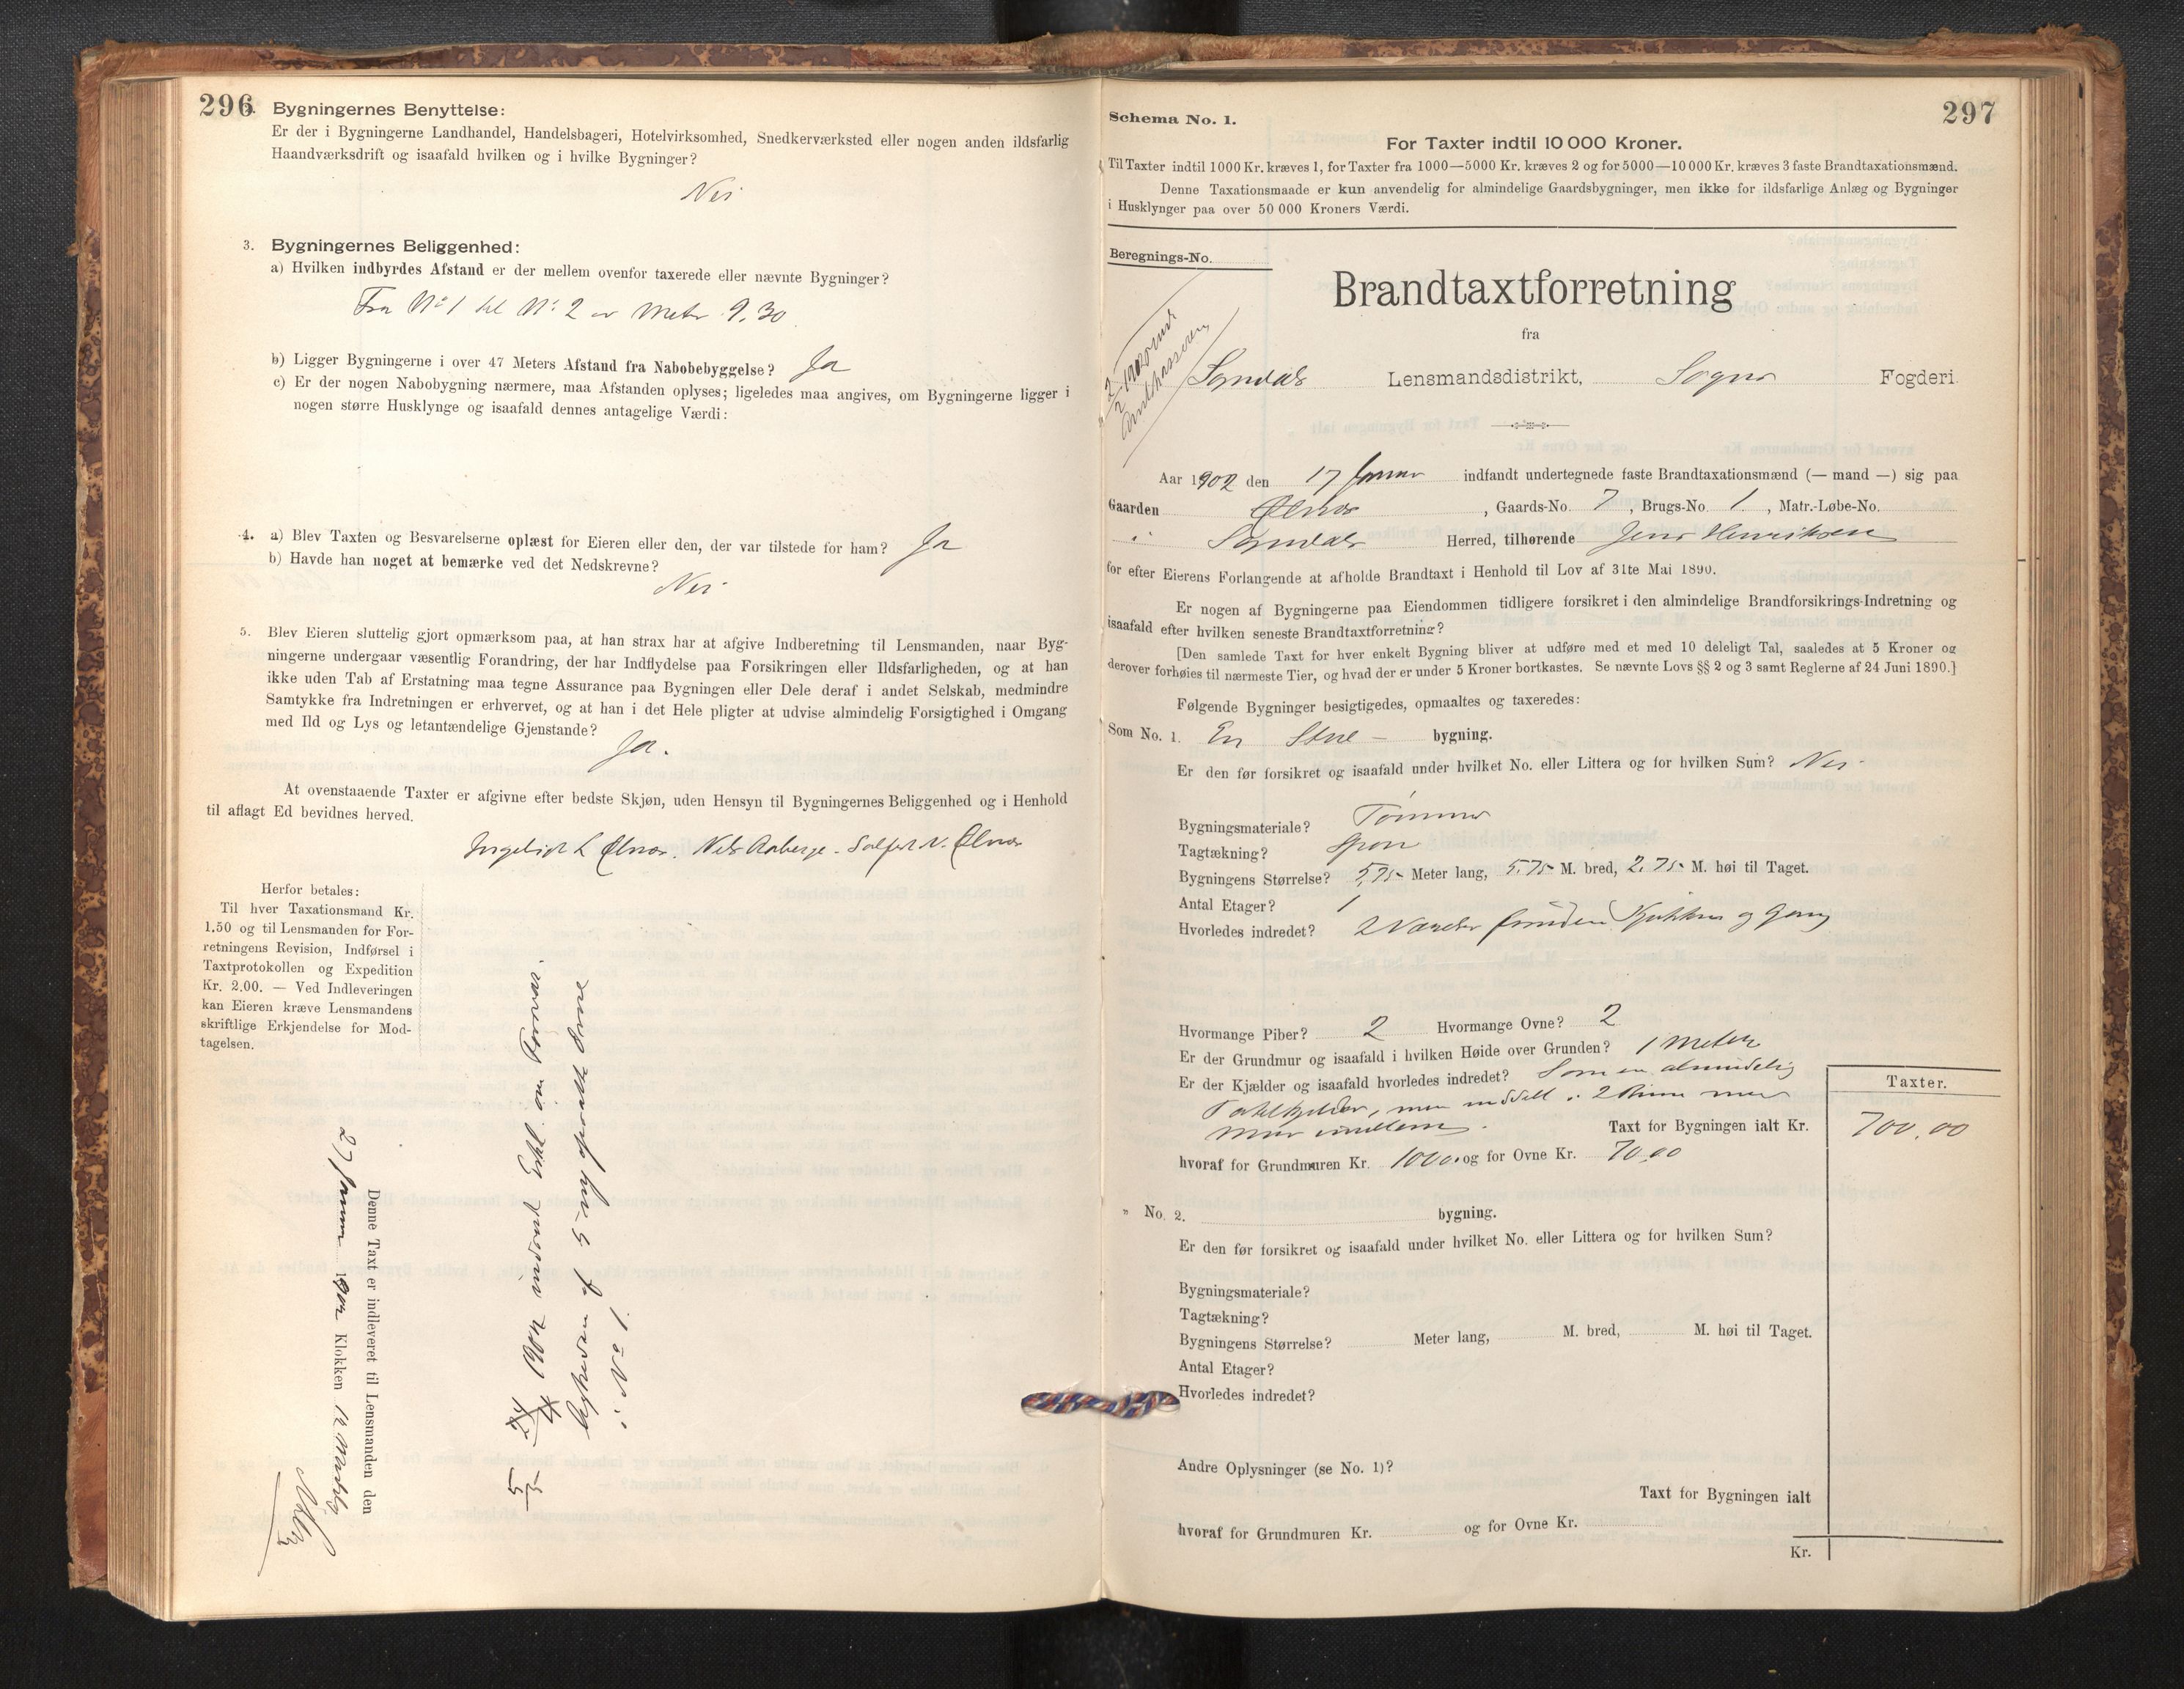 296
2. Bygningernes Benyttelse:
Er der i Bygningerne Landhandel, Handelsbageri, Hotelvirksomhed, Snedkerværksted eller nogen anden ildsfarlig
Haandværksdrift og isaafald hvilken og i hvilke Bygninger?
Nei
3. Bygningernes Beliggenhed:
a) Hvilken indbyrdes Afstand er der mellem ovenfor taxerede eller nævnte Bygninger?
Fra No 1 til No 2 er Meter 9.30
b) Ligger Bygningerne i over 47 Meters Afstand fra Nabobebyggelse? Ja
c) Er der nogen Nabobygning nærmere, maa Afstanden oplyses; ligeledes maa angives, om Bygningerne ligger i
nogen større Husklynge og isaafald dennes antagelige Værdi:
4. a) Blev Taxten og Besvarelserne oplæst for Eieren eller den, der var tilstede for ham? Ja
b) Havde han noget at bemærke ved det Nedskrevne?
Nei
5. Blev Eieren sluttelig gjort opmærksom paa, at han strax har at afgive Indberetning til Lensmanden, naar Byg-
ningerne undergaar væsentlig Forandring, der har Indflydelse paa Forsikringen eller Ildsfarligheden, og at han
ikke uden Tab af Erstatning maa tegne Assurance paa Bygningen eller Dele deraf i andet Selskab, medmindre
Samtykke fra Indretningen er erhvervet, og at han i det Hele pligter at udvise almindelig Forsigtighed i Omgang
med Ild og Lys og letantændelige Gjenstande?
Ja.
At ovenstaaende Taxter er afgivne efter bedste Skjøn, uden Hensyn til Bygningernes Beliggenhed og i Henhold
til aflagt Ed bevidnes herved.
L Ølnæs. Nels Aaberge. N. Ølnæs
Herfor betales:
Til hver Taxationsmand Kr.
1.50 og til Lensmanden for For-
retningens Revision, Indførsel i
Taxtprotokollen og Expedition
Kr. 2.00. — Ved Indleveringen
kan Eieren kræve Lensmandens
skriftlige Erkjendelse for Mod-
tagelsen.
Denne Taxt er indleveret til Lensmanden den
27 Januar 1902 Klokken 12 Middag
1902 indsendt Erkl. om
af 5 ny opsatte Ovne
i No 1.
297
Schema No. 1.
For Taxter indtil 10 000 Kroner.
Til Taxter indtil 1000 Kr. kræves 1, for Taxter fra 1000—5000 Kr. kræves 2 og for 5000—10 000 Kr. kræves 3 faste Brandtaxationsmænd.
Denne Taxationsmaade er kun anvendelig for almindelige Gaardsbygninger, men ikke for ildsfarlige Anlæg og Bygninger
i Husklynger paa over 50 000 Kroners Værdi.
Beregnings-No.
Brandtaxtforretning
fra
Sogndals Lensmandsdistrikt, Sogns Fogderi.
Aar 1902 den 17 Januar indfandt undertegnede faste Brandtaxationsmænd (— mand —) sig paa
Gaarden Ølnæs, Gaards-No. 7, Brugs-No. 1., Matr.-Løbe-No.
i Sogndals Herred, tilhørende Jens Henriksen
for efter Eierens Forlangende at afholde Brandtaxt i Henhold til Lov af 31te Mai 1890.
Er nogen af Bygningerne paa Eiendommen tidligere forsikret i den almindelige Brandforsikrings-Indretning og
isaafald efter hvilken seneste Brandtaxtforretning?
[Den samlede Taxt for hver enkelt Bygning bliver at udføre med et med 10 deleligt Tal, saaledes at 5 Kroner og
derover forhøies til nærmeste Tier, og hvad der er under 5 Kroner bortkastes. Se nævnte Lovs §§ 2 og 3 samt Reglerne af 24 Juni 1890.]
Følgende Bygninger besigtigedes, opmaaltes og taxeredes:
Som No. 1. En Stue - bygning.
Er den før forsikret og isaafald under hvilket No. eller Littera og for hvilken Sum? Nei
Bygningsmateriale? Tømmer
Tagtækning? Spon
Bygningens Størrelse? 5,75 Meter lang, 5,75 M. bred, 2,75 M. høi til Taget.
Antal Etager? 1
Hvorledes indredet? 2 Værelser foruden Kjøkken og Gang
Hvormange Piber? 2 Hvormange Ovne? 2
Er der Grundmur og isaafald i hvilken Høide over Grunden? 1 Meter
Er der Kjælder og isaafald hvorledes indredet? Som en almindelig
men inddelt i 2 Rum med
Mur imellem.
Taxter.
Taxt for Bygningen ialt Kr. 700.00
hvoraf for Grundmuren Kr. 100.0 og for Ovne Kr. 70.00
" No. 2. bygning.
Er den før forsikret og isaafald under hvilket No. eller Littera og for hvilken Sum?
Bygningsmateriale?
Tagtækning?
Bygningens Størrelse? Meter lang, M. bred, M. høi til Taget.
Antal Etager?
Hvorledes indredet?
Andre Oplysninger (se No. 1)?
Taxt for Bygningen ialt
hvoraf for Grundmuren Kr. og for Ovne Kr.
Kr.